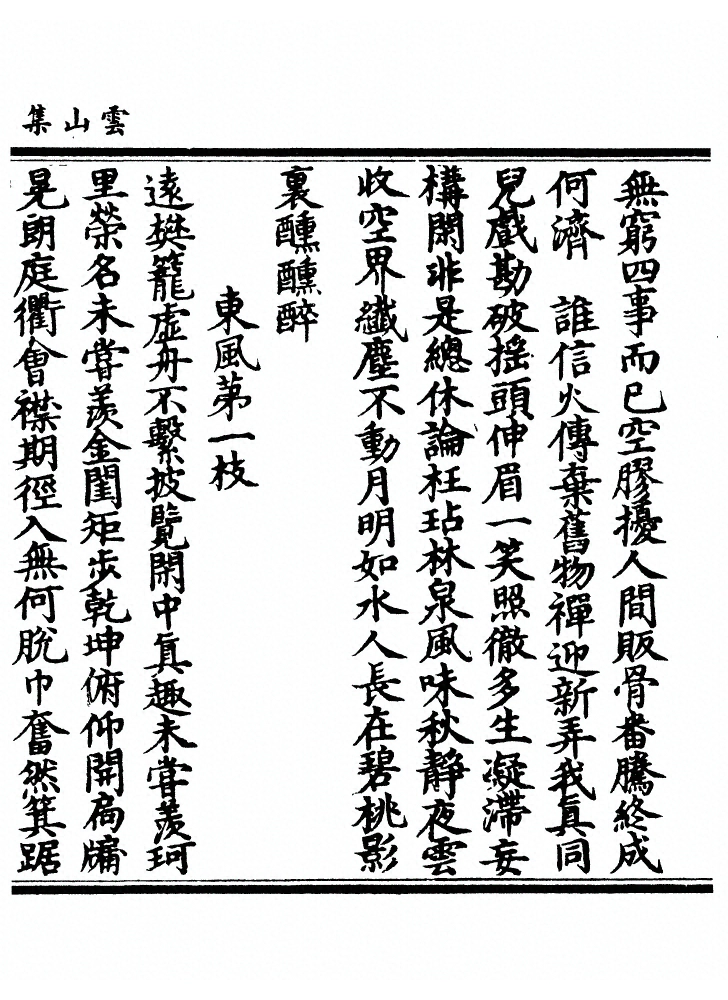 雲山集
無窮四事而已空膠擾人間販骨番騰終成
何濟　誰信火傳棄舊物禪迎新弄我真同
兒戲勘破搖頭伸眉一笑照徹多生凝滯妄
構閑非是總休論枉玷林泉風味秋靜夜雲
收空界纖塵不動月明如水人長在碧桃影
裏醺醺醉
東風第一枝
遠樊籠虛舟不繫披覽閑中真趣未嘗羨珂
里榮名未嘗羨金閨矩步乾坤俯仰開扃牖
晃朗庭衢會襟期徑入無何脫巾奮然箕踞